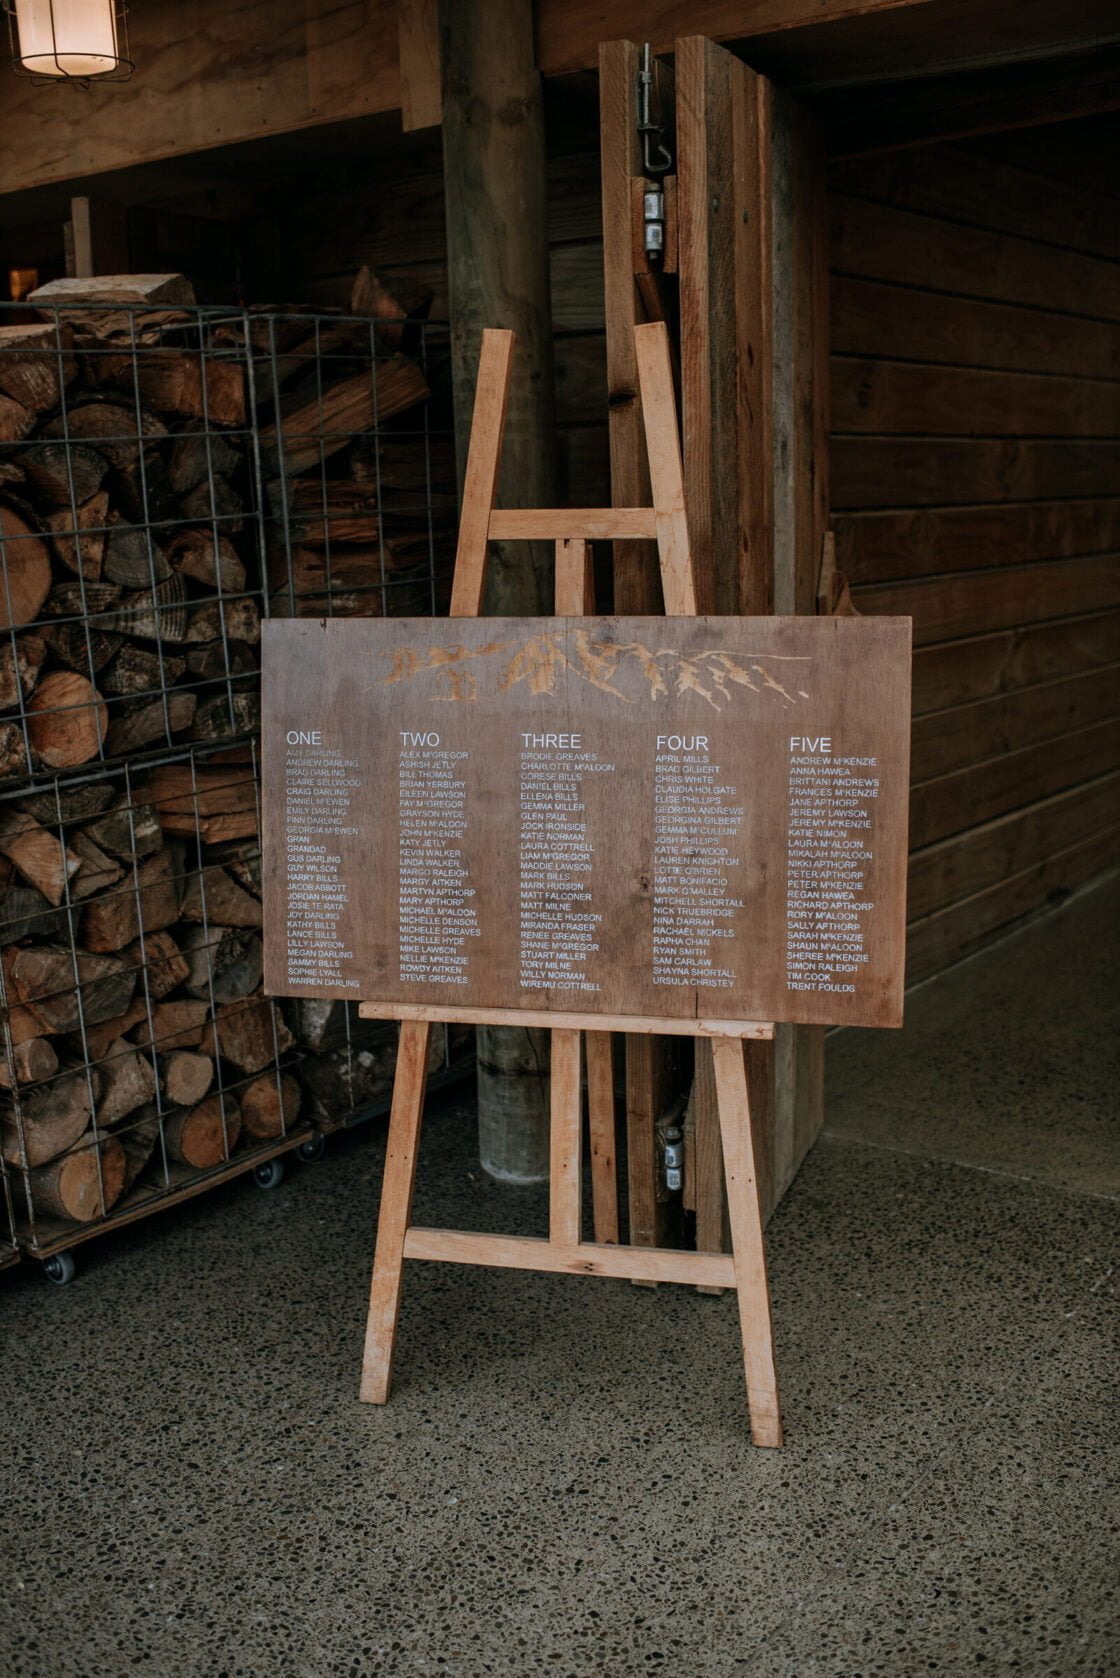 ONE
AMY DARLING
ANDREW DARLING
BRAD DARLING
CLAIRE SELLWOOD
CRAIG DARLING
DANIEL McEWEN
EMILY DARLING
FINN DARLING
GEORGIA McEWEN
GRAN
GRANDAD
GUS DARLING
GUY WILSON
HARRY BILLS
JACOB ABBOTT
JORDAN HAMEL
JOSIE TE RATA
JOY DARLING
KATHY BILLS
LANCE BILLS
LILLY LAWSON
MEGAN DARLING
SAMMY BILLS
SOPHIE LYALL
WARREN DARLING
TWO
ALEX McGREGOR
ASHISH JETLY
BILL THOMAS
BRIAN YERBURY
EILEEN LAWSON
FAY McGREGOR
GRAYSON HYDE
HELEN McALOON
JOHN McKENZIE
KATY JETLY
KEVIN WALKER
LINDA WALKER
MARGO RALEIGH
MARGY AITKEN
MARTYN APTHORP
MARY APTHORP
MICHAEL McALOON
MICHELLE DENSON
MICHELLE GREAVES
MICHELLE HYDE
MIKE LAWSON
NELLIE McKENZIE
ROWDY AITKEN
STEVE GREAVES
THREE
BRODIE GREAVES
CHARLOTTE McALOON
CORESE BILLS
DANIEL BILLS
ELLENA BILLS
GEMMA MILLER
GLEN PAUL
JOCK IRONSIDE
KATIE NORMAN
LAURA COTTRELL
LIAM McGREGOR
MADDIE LAWSON
MARK BILLS
MARK HUDSON
MATT FALCONER
MATT MILNE
MICHELLE HUDSON
MIRANDA FRASER
RENEE GREAVES
SHANE McGREGOR
STUART MILLER
TORY MILNE
WILLY NORMAN
WIREMU COTTRELL
FOUR
APRIL MILLS
BRAD GILBERT
CHRIS WHITE
CLAUDIA HOLGATE
ELISE PHILLIPS
GEORGIA ANDREWS
GEORGINA GILBERT
GEMMA McCULLUM
JOSH PHILLIPS
KATIE HEYWOOD
LAUREN KNIGHTON
LOTTIE O'BRIEN
MATT BONIFACIO
MARK O'MALLEY
MITCHELL SHORTALL
NICK TRUEBRIDGE
NINA DARRAH
RACHAEL NICKELS
RAPHA CHAN
RYAN SMITH
SAM CARLAW
SHAYNA SHORTALL
URSULA CHRISTEY
FIVE
ANDREW McKENZIE
ANNA HAWEA
BRITTANI ANDREWS
FRANCES McKENZIE
JANE APTHORP
JEREMY LAWSON
JEREMY McKENZIE
KATIE NIMON
LAURA McALOON
MIKALAH McALOON
NIKKI APTHORP
PETER APTHORP
PETER McKENZIE
REGAN HAWEA
RICHARD APTHORP
RORY McALOON
SALLY APTHORP
SARAH McKENZIE
SHAUN McALOON
SHEREE McKENZIE
SIMON RALEIGH
TIM COOK
TRENT FOULDS